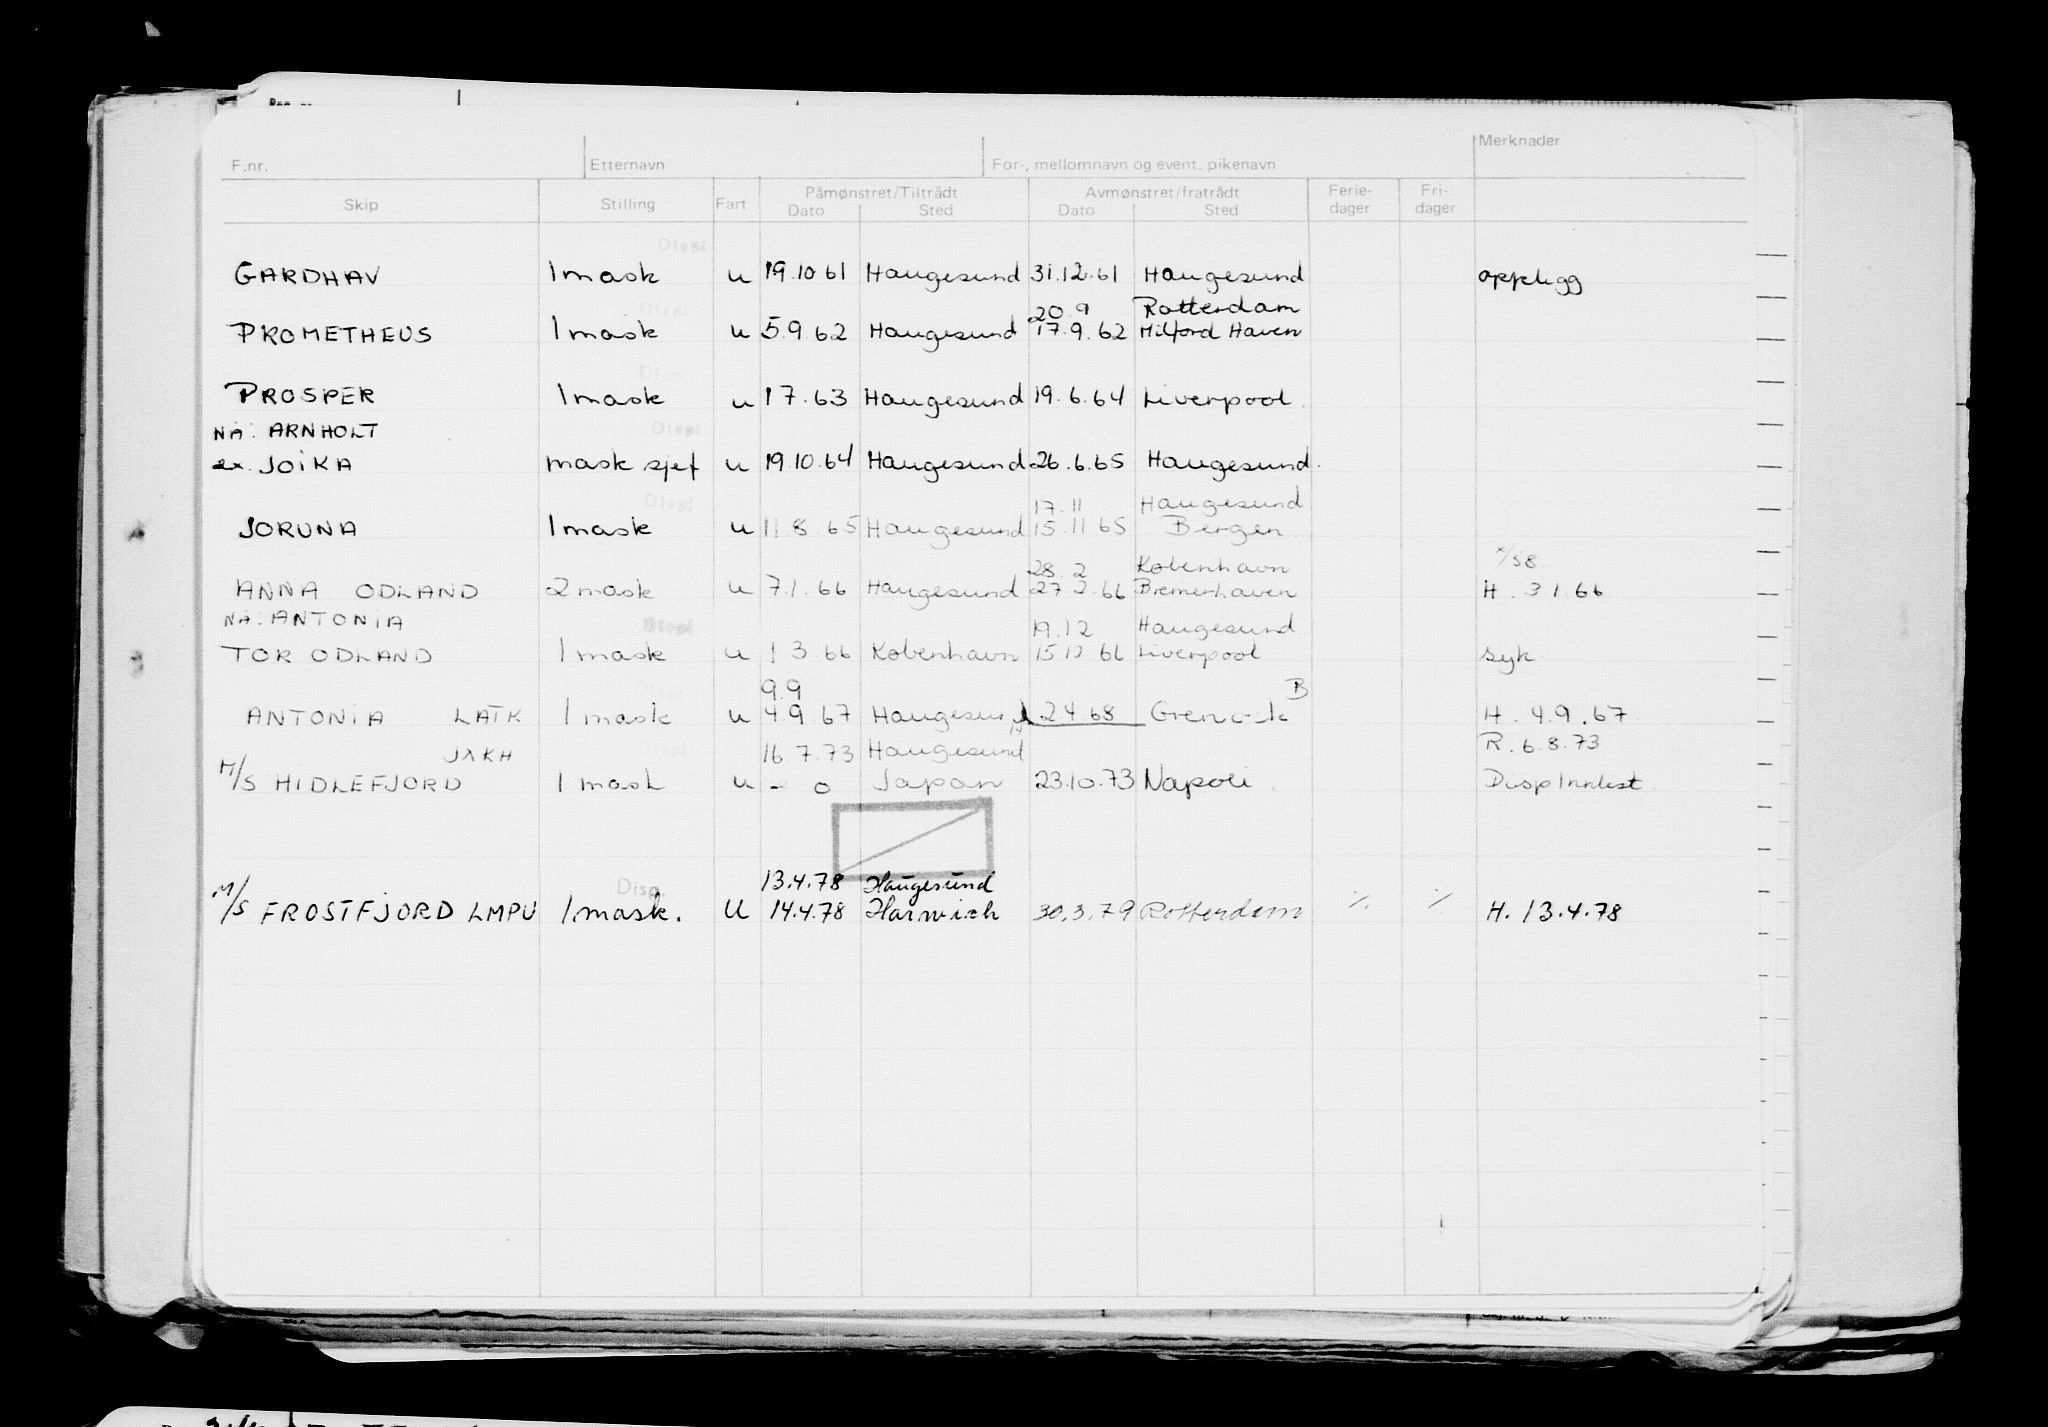 Merknader
F.nr. Etternavn For-, mellomnavn og event. pikenavn
Påmønstret/Tiltrådt Avmønstret/fratrådt Ferie- Fri-
Skip Stilling Fart Dato Sted Dato Sted dager dager
Displ
GARDHAV 1 mask u 19.10 61 Haugesund 31.12.61 Haugesund opplegg
Displ 20.9 Rotterdam
PROMETHEUS 1 mask u 5.9.62 Haugesund 17.9.62 Milford Haven
Displ
PROSPER 1 mask u 1 7.63 Haugesund 19.6.64 Liverpool
NÅ: ARNHOLT Displ
ex. JOIKA mask sjef u 19.10.64 Haugesund 26.6.65 Haugesund.
Displ 17.11 Haugesund
JORUNA 1 mask u 11.8.65 Haugesund 15.11 65 Bergen.
28.2 København x/58
ANNA ODLAND 2 mask u 7.1.66 Haugesund 27.2.66 Bremerhaven H. 3.1.66
NÅ: ANTONIA Displ 19.12 Haugesund
TOR ODLAND 1 mask u 1 3 66 København 15.12 66 Liverpool syk
Displ 9.9 B
ANTONIA LATK 1 mask u 4.9.67 Haugesund 2 4 68 Grenock H. 4.9.67
JXKH 16.7.73 Haugesund R. 6.8.73
M/S HIDLEFJORD 1 mask u - o Japan 23.10.73 Napoli. Disp Innlest
Disp. 13.4.78 Haugesund
M/S FROSTFJORD LMPU 1. mask. U 14.4.78 Harwich 30.3.79 Rotterdam /. /. H. 13.4.78